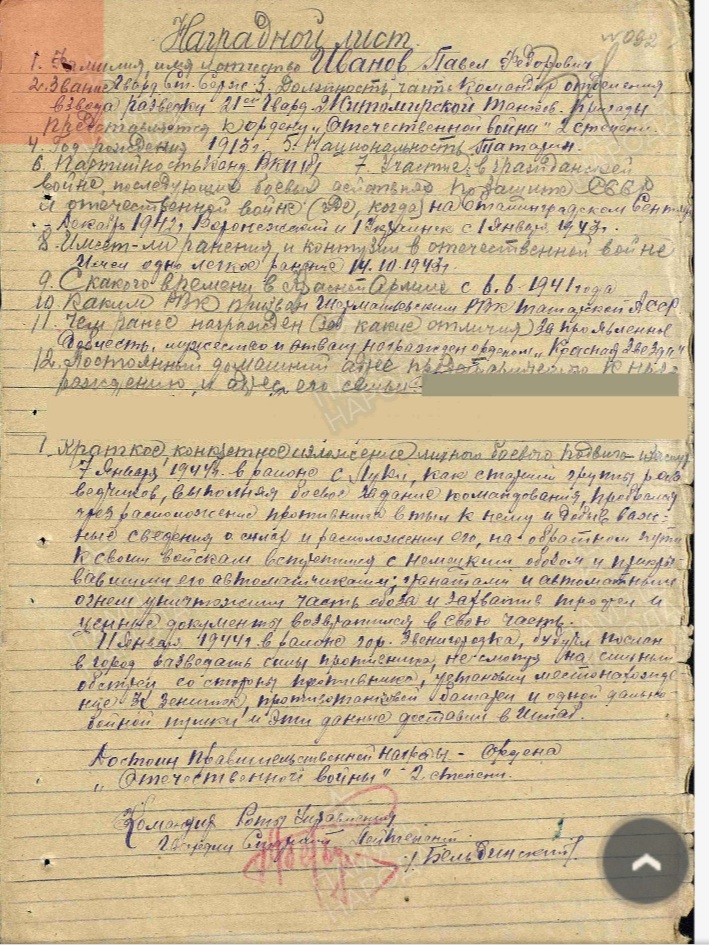 Наградной лист.
1. Фамилия, имя и отчество Иванов Павел Федорович
2. Звание Гвард. Ст. Серж. 3. Должность, часть Командир отделения
взвода разведки 21ой Гвард. Житомирской Танков. Бригады
представляется к ордену „Отечественной войны" 2 степени.
4. Год рождения 1913 г. 5. Национальность Татарин.
6. Партийность Канд. ВКП(б) 7. Участие в гражданской
войне, последующих боевых действиях по защите СССР
и отечественной войне (где, когда) на Сталинградском Сентябрь
- Декабрь 1942 г. Воронежский и 1й Украинск. с 1 Января 1943 г.
8. Имеет-ли ранения и контузии в отечественной войне
Имеет одно легкое ранение 14.10.1943 г.
9. С какого времени в Красной Армии с 6.6-1941 года
10. Каким РВК призван Шармашевским РВК Татарской АССР
11. Чем ранее награжден (за какие отличия) За проявленное
доблесть, мужество и отвагу награжден орденом „Красная Звезда"
12. Постоянный домашний адрес представляемого к наг-
раждению и адрес его семьи
1. Краткое, конкретное изложение личного боевого подвига
7 Января 1944 г. в районе с. Луки, как старший группы раз-
ведчиков, выполняя боевое задание командования, пробрался
через расположение противника в тыл к нему и добыв важ-
ные сведения о силах и расположении его, на обратном пути
к своим войскам встретился с немецким обозом и прикры-
вавшими его автоматчиками; гранатами и автоматным
огнем уничтожил часть обоза и захватив трофеи и
ценные документы возвратился в свою часть.
11 Января 1944 г. в районе гор. Звенигородка, будучи послан
в город разведать силы противника, не смотря на сильный
обстрел со стороны противника, установил местонахожде-
ние 3х зениток, противотанковой батареи и одной дально-
бойной пушки и эти данные доставил в Штаб.
Достоин Правительственной награды - Ордена
„Отечественной войны" - 2 степени.
Командир Роты Управления
Гвардии Старший Лейтенант
/Бельдинский/